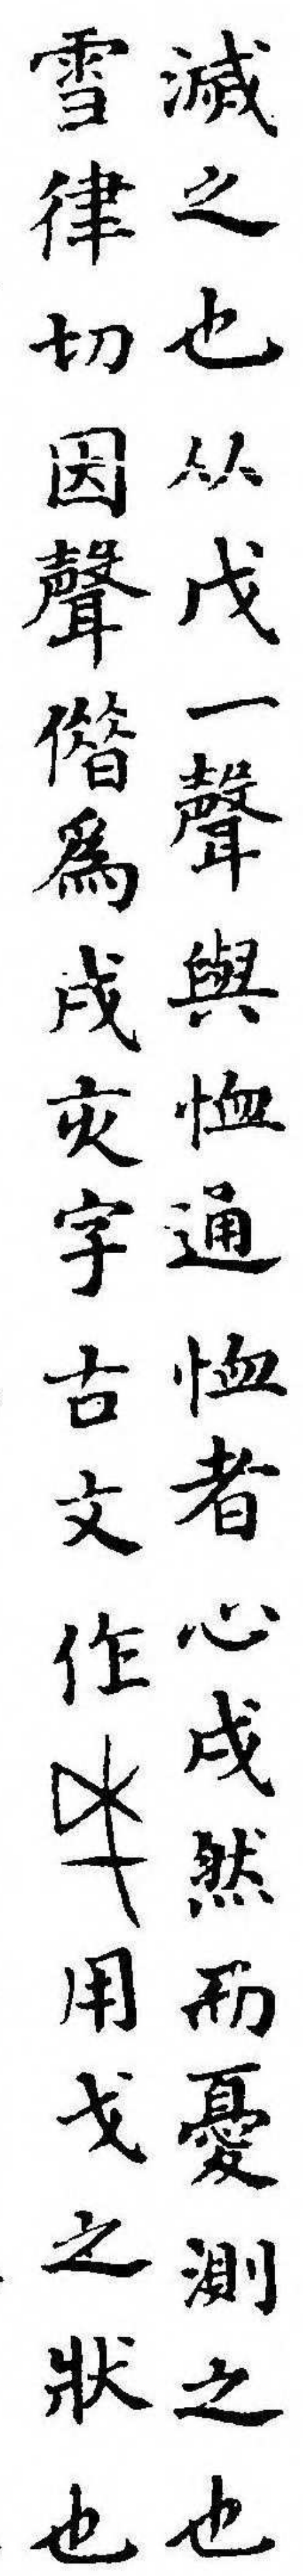 滅之也从戊一聲與恤通恤者心戌然而憂測之也
雪律切因聲偺為戌亥字古文作用戈之狀也